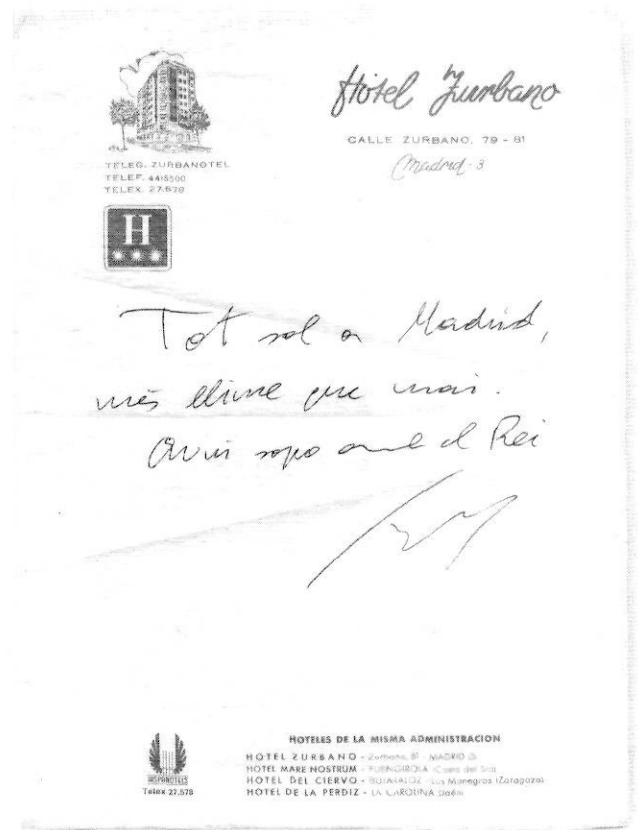 Hotel Zurbano
CALLE ZURBANO, 79 - 81
Madrid - 3
TELEG. ZURBANOTEL
TELEF. 4415500
TELEX. 27.578
H
Tot sol a Madrid,
més lliure que mai.
Avui sopo amb el Rei
HISPANOTELES
Telex 27.578
HOTELES DE LA MISMA ADMINISTRACION
HOTEL ZURBANO - Zurbano, 81 - MADRID
HOTEL MARE NOSTRUM - FUENGIROLA (Costa del Sol)
HOTEL DEL CIERVO - BUJARALOZ - Los Monegros (Zaragoza)
HOTEL DE LA PERDIZ - LA CAROLINA (Jaén)